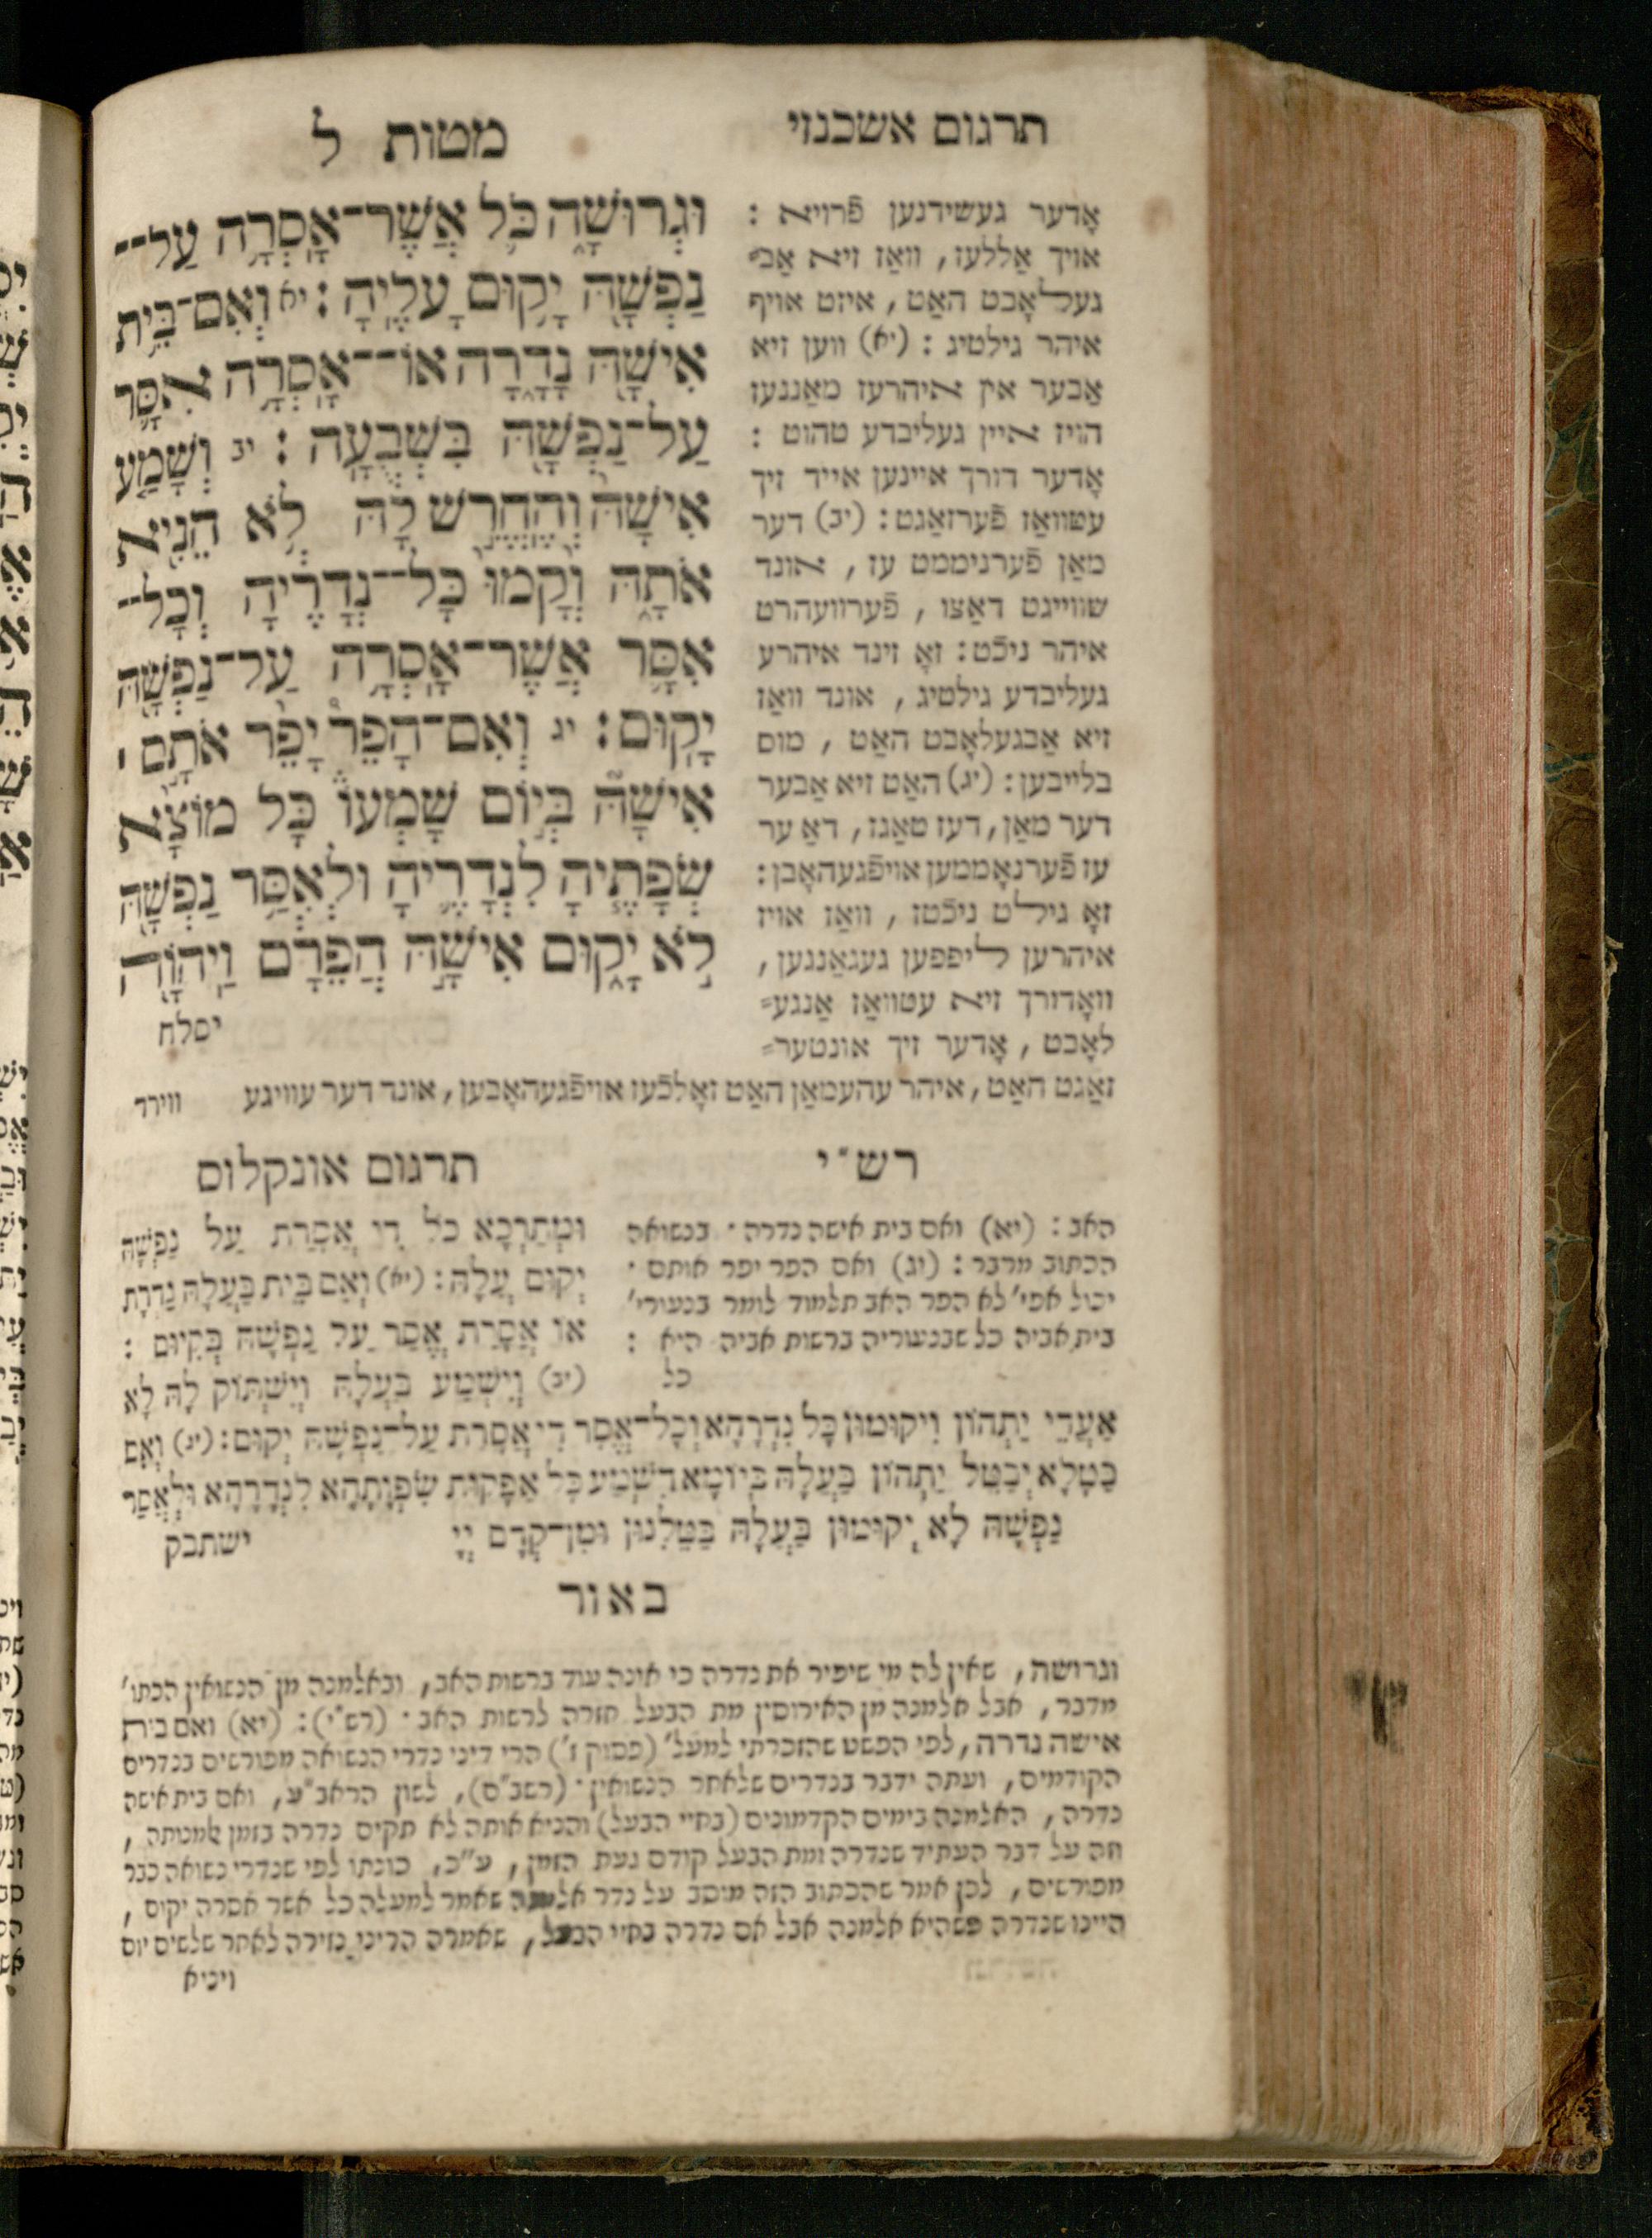 תרגום אשכנזי
מטות ל
וּגְרוּשָׁה כֹּל אֲשֶׁר־אָסְרָה עַל־
נַפְשָׁהּ יָקוּם עָלֶיהָ : יא וְאִם־בֵּית
אִישָׁהּ נָדָרָה אוֹ־אָסְרָה אִסָּר
עַל־נַפְשָׁהּ בִּשְׁבֻעָה : יב וְשָׁמַע
אִישָׁהּ וְהֶחֱרִשׁ לָהּ לֹא הֵנִיא
אֹתָהּ וְקָמוּ כָּל־נְדָרֶיהָ וְכָל־
אִסָּר אֲשֶׁר־אָסְרָה עַל־נַפְשָׁהּ
יָקוּם : יג וְאִם־הָפֵר יָפֵר אֹתָם ׀
אִישָׁהּ בְּיוֹם שָׁמְעוֹ כָּל מוֹצָא
שְׂפָתֶיהָ לִנְדָרֶיהָ וּלְאִסַּר נַפְשָׁהּ
לֹא יָקוּם אִישָׁהּ הֲפֵרָם וַיהוָה
יסלח
אָדער געשידנען פֿרויא :
אויך אַללעז, וואַז זיא אַב⸗
געלאָבט האַט, איזט אויף
איהר גילטיג : (יא) ווען זיא
אַבער אין איהרעז מאַננעז
הויז איין געליבדע טהוט :
אָדער דורך איינען אייד זיך
עטוואַז פֿערזאַגט : (יב) דער
מאַן פֿערנימט עז, אונד
שווייגט דאַצו, פֿערוועהרט
איהר ניכֿט : זאָ זינד איהרע
געליבדע גילטיג, אונד וואַז
זיא אַבגעלאָבט האַט, מוס
בלייבען : (יג) האַט זיא אַבער
דער מאַן, דעז טאַגז, דאַ ער
עז פֿערנאָממען אויפֿגעהאָבן :
זאָ גילט ניכֿטז, וואַז אויז
איהרען ליפפען געגאַנגען,
וואָדורך זיא עטוואַז אַנגע⸗
לאָבט, אָדער זיך אונטער⸗
זאַגט האַט, איהר עהעמאַן האַט זאָלכֿעז אויפֿגעהאָבען, אונד דער עוויגע ווירד
רש"י
האב : (יא) ואם בית אישה נדרה · בנשואה
הכתוב מדבר : (יג) ואם הפר יפר אותם ·
יכול אפי' לא הפר האב תלמוד לומר בנעורי'
בית אביה כל שבנעוריה ברשות אביה היא :
כל
תרגום אונקלוס
וּמְתָרְכָא כֹּל דִי אֲסָרַת עַל נַפְשָׁהּ
יְקוּם עֲלָהּ : (יא) וְאִם בֵּית בַּעְלָהּ נְדָרַת
אוֹ אֲסָרַת אֱסַר עַל נַפְשָׁהּ בְּקִיּוּם :
(יב) וְיִשְׁמַע בַּעְלָהּ וְיִשְׁתּוֹק לָהּ לָא
אַעְדִּי יַתְהוֹן וִיקוּמוּן כָּל נִדְרָהָא וְכָל־אֱסַר דִי אֲסָרַת עַל־נַפְשָׁהּ יְקוּם : (יג) וְאִם
בַּטָּלָא יְבַטֵּל יַתְהוֹן בַּעְלָהּ בְּיוֹמָא דִשְׁמַע כָּל אַפָּקוּת שִׂפְוָתָהָא לְנִדְרָהָא וּלְאֱסַר
נַפְשָׁהּ לָא יְקוּמוּן בַּעְלָהּ בַּטֵּלִנּוּן וּמִן־קֳדָם יְיָ ישתבק
באור
וגרושה, שאין לה מי שיפיר את נדרה כי אינה עוד ברשות האב, ובאלמנה מן הנשואין הכתו'
מדבר, אבל אלמנה מן האירוסין מת הבעל חזרה לרשות האב · (רש"י) : (יא) ואם בית
אישה נדרה, לפי הפשט שהזכרתי למעל' (פסוק ז') הרי דיני נדרי הנשואה מפורשים בנדרים
הקודמים, ועתה ידבר בנדרים שלאחר הנשואין · (רשב"ם), לשון הראב"ע, ואם בית אישה
נדרה, האלמנה בימים הקדמונים (בחיי הבעל) והניא אותה לא תקים נדרה בזמן אלמנותה,
וזה על דבר העתיד שנדרה ומת הבעל קודם געת הזמן, ע"כ, כונתו לפי שנדרי נשואה כבר
מפורשים, לכן אמר שהכתוב הזה מוסב על נדר אלמנה שאמר למעלה כל אשר אסרה יקום,
היינו שנדרה כשהיא אלמנה אבל אם נדרה בחיי הבעל, שאמרה הריני נזירה לאחר שלשים יום
ויניא